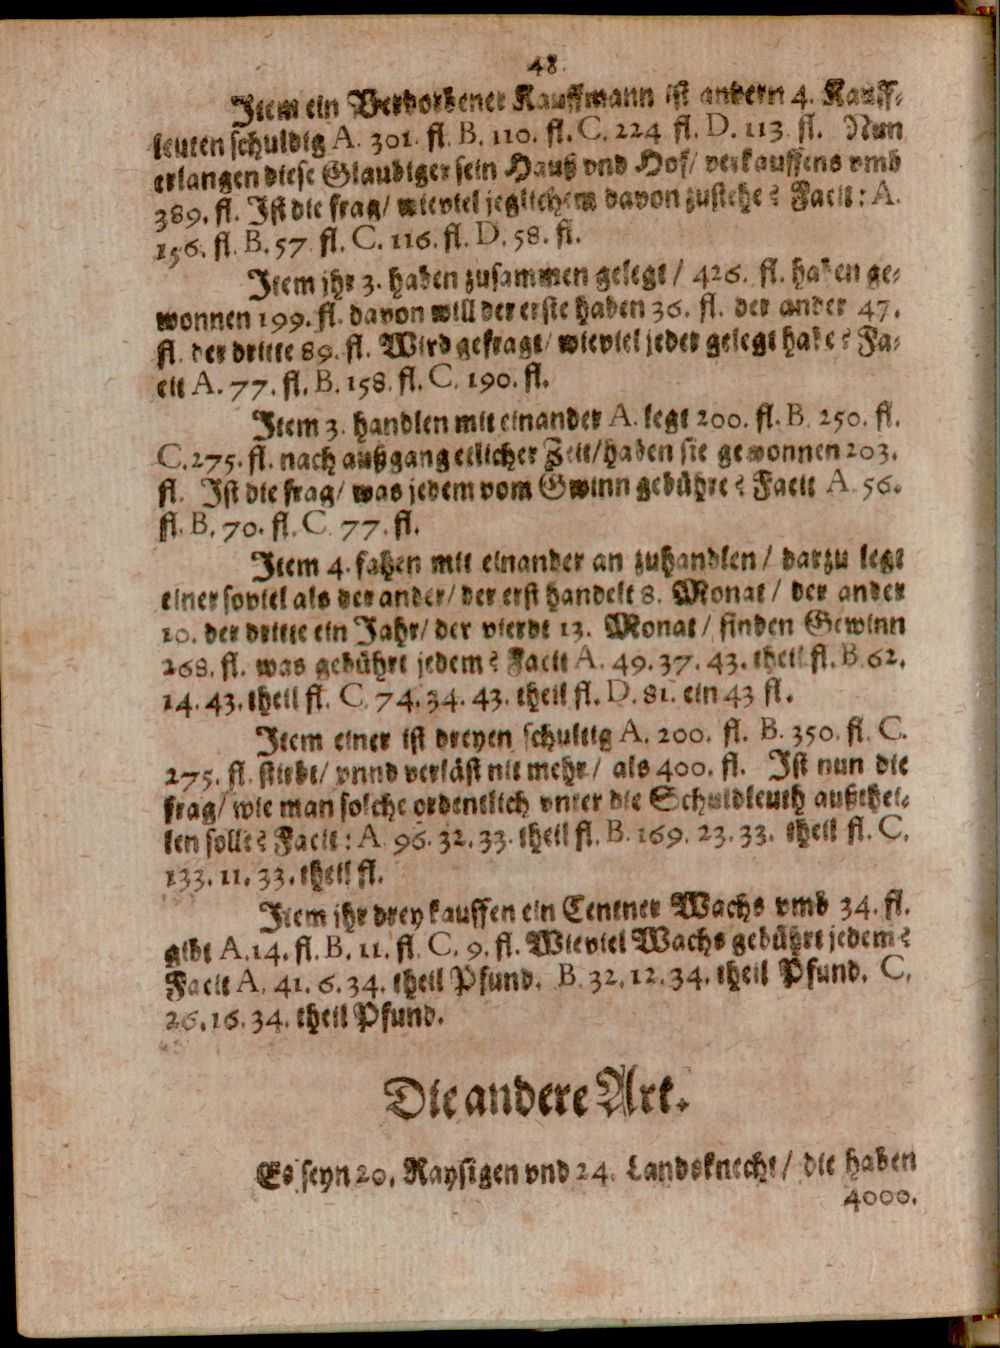 48.
Item ein Verdorbener Kauffmann ist andern 4. Kauff-
leuten schuldig A. 301. fl. B. 110. fl. C. 224 fl. D. 113 fl. Nun
erlangen diese Glaudiger sein Hauß vnd Hof/ verkauffens vmb
389. fl. Ist die frag/ wieviel jeglichem davon zustehe? Facit: A.
156. fl. B. 57 fl. C. 116. fl. D. 58. fl.
Item jhr 3. haben zusammen gelegt / 426. fl. haben ge-
wonnen 199. fl. davon will der erste haben 36. fl. der ander 47.
fl. der dritte 89. fl. Wird gefragt/ wieviel jeder gelegt habe? Fa-
cit A. 77. fl. B. 158. fl. C. 190. fl.
Item 3. handlen mit einander A. legt 200. fl. B. 250. fl.
C. 275. fl. nach außgang etlicher Zeit/ haben sie gewonnen 203.
fl. Ist die frag/ was jedem vom Gwinn gebühre? Facit A 56.
fl. B. 70. fl. C. 77. fl.
Item 4. fahen mit einander an zuhandlen / darzu legt
einer soviel als der ander/ der erst handelt 8. Monat / der ander
10. der dritte ein Jahr/ der vierdt 13. Monat / finden Gewinn
268. fl. was gebührt jedem? Facit A. 49. 37. 43. theil fl. B. 62.
14. 43. theil fl. C. 74. 34. 43. theil fl. D. 81. ein 43 fl.
Item einer ist dreyen schultig A. 200. fl. B. 350. fl. C.
275. fl. stirbt/ vnnd verläst nit mehr / als 400. fl. Ist nun die
frag/ wie man solche ordentlich vnter die Schuldleuth außthei-
len solle? Facit: A 96. 32. 33. theil fl. B. 169. 23. 33. theil fl. C.
133. 11. 33. theil fl.
Item jhr drey kauffen ein Centner Wachs vmb 34. fl.
gibt A. 14. fl. B. 11. fl. C. 9. fl. Wieviel Wachs gebührt jedem?
Facit A. 41. 6. 34. theil Pfund. B. 32. 12. 34. theil Pfund. C.
26. 16. 34. theil Pfund.
Die andere Art.
Es seyn 20. Raysigen vnd 24. Landsknecht / die haben
4000.